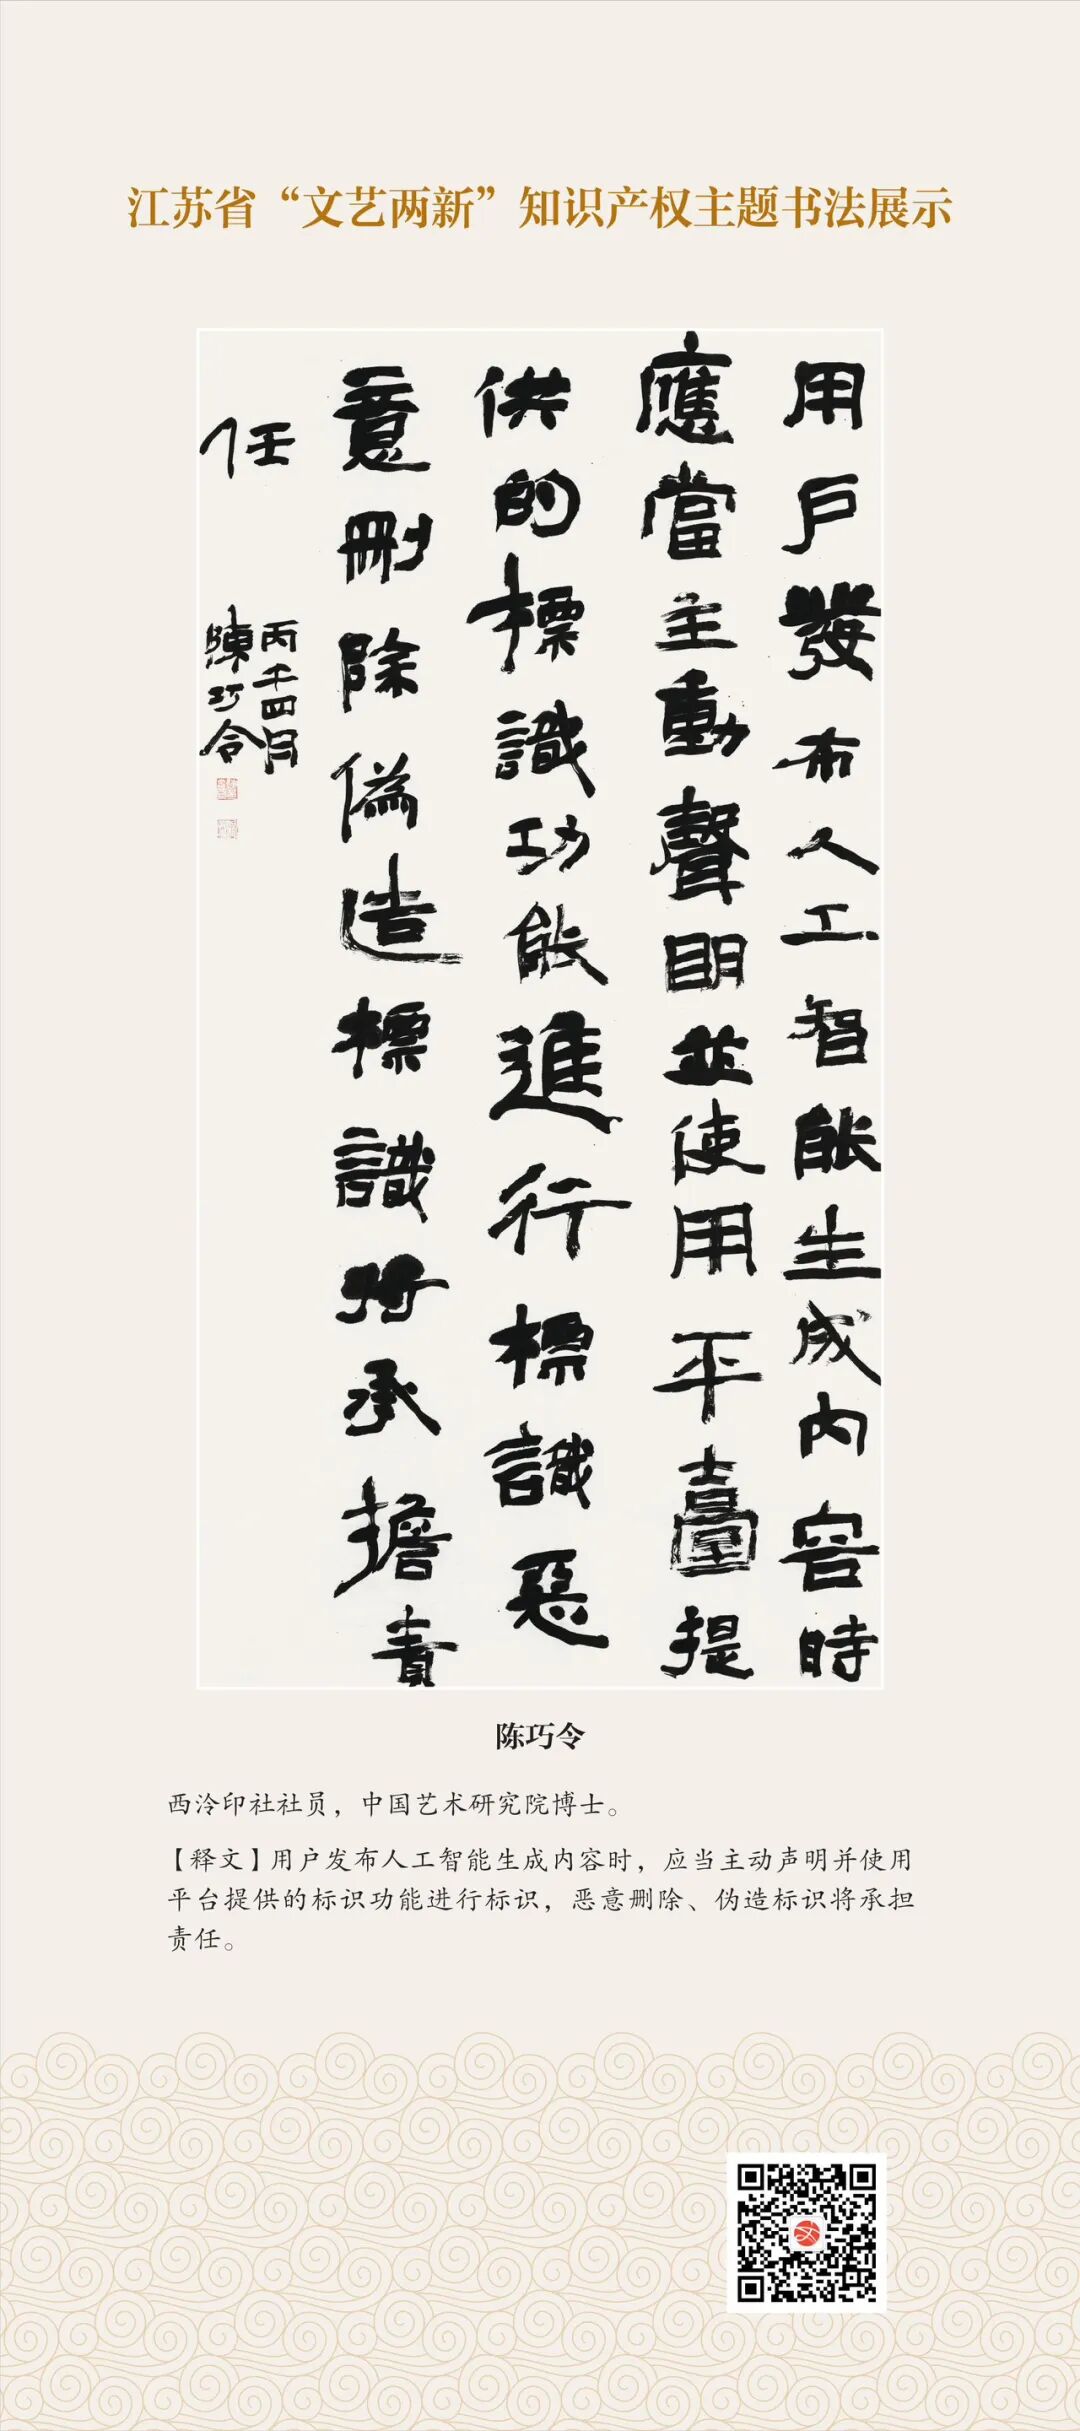 江苏省“文艺两新”知识产权主题书法展示
用戶發布人工智能生成内容時
應當主動聲明並使用平臺提
供的標識功能進行標識惡
意刪除偽造標識将承擔責
任
丙午四月
陳巧令
陈巧令
西泠印社社员，中国艺术研究院博士。
【释文】用户发布人工智能生成内容时，应当主动声明并使用
平台提供的标识功能进行标识，恶意删除、伪造标识将承担
责任。